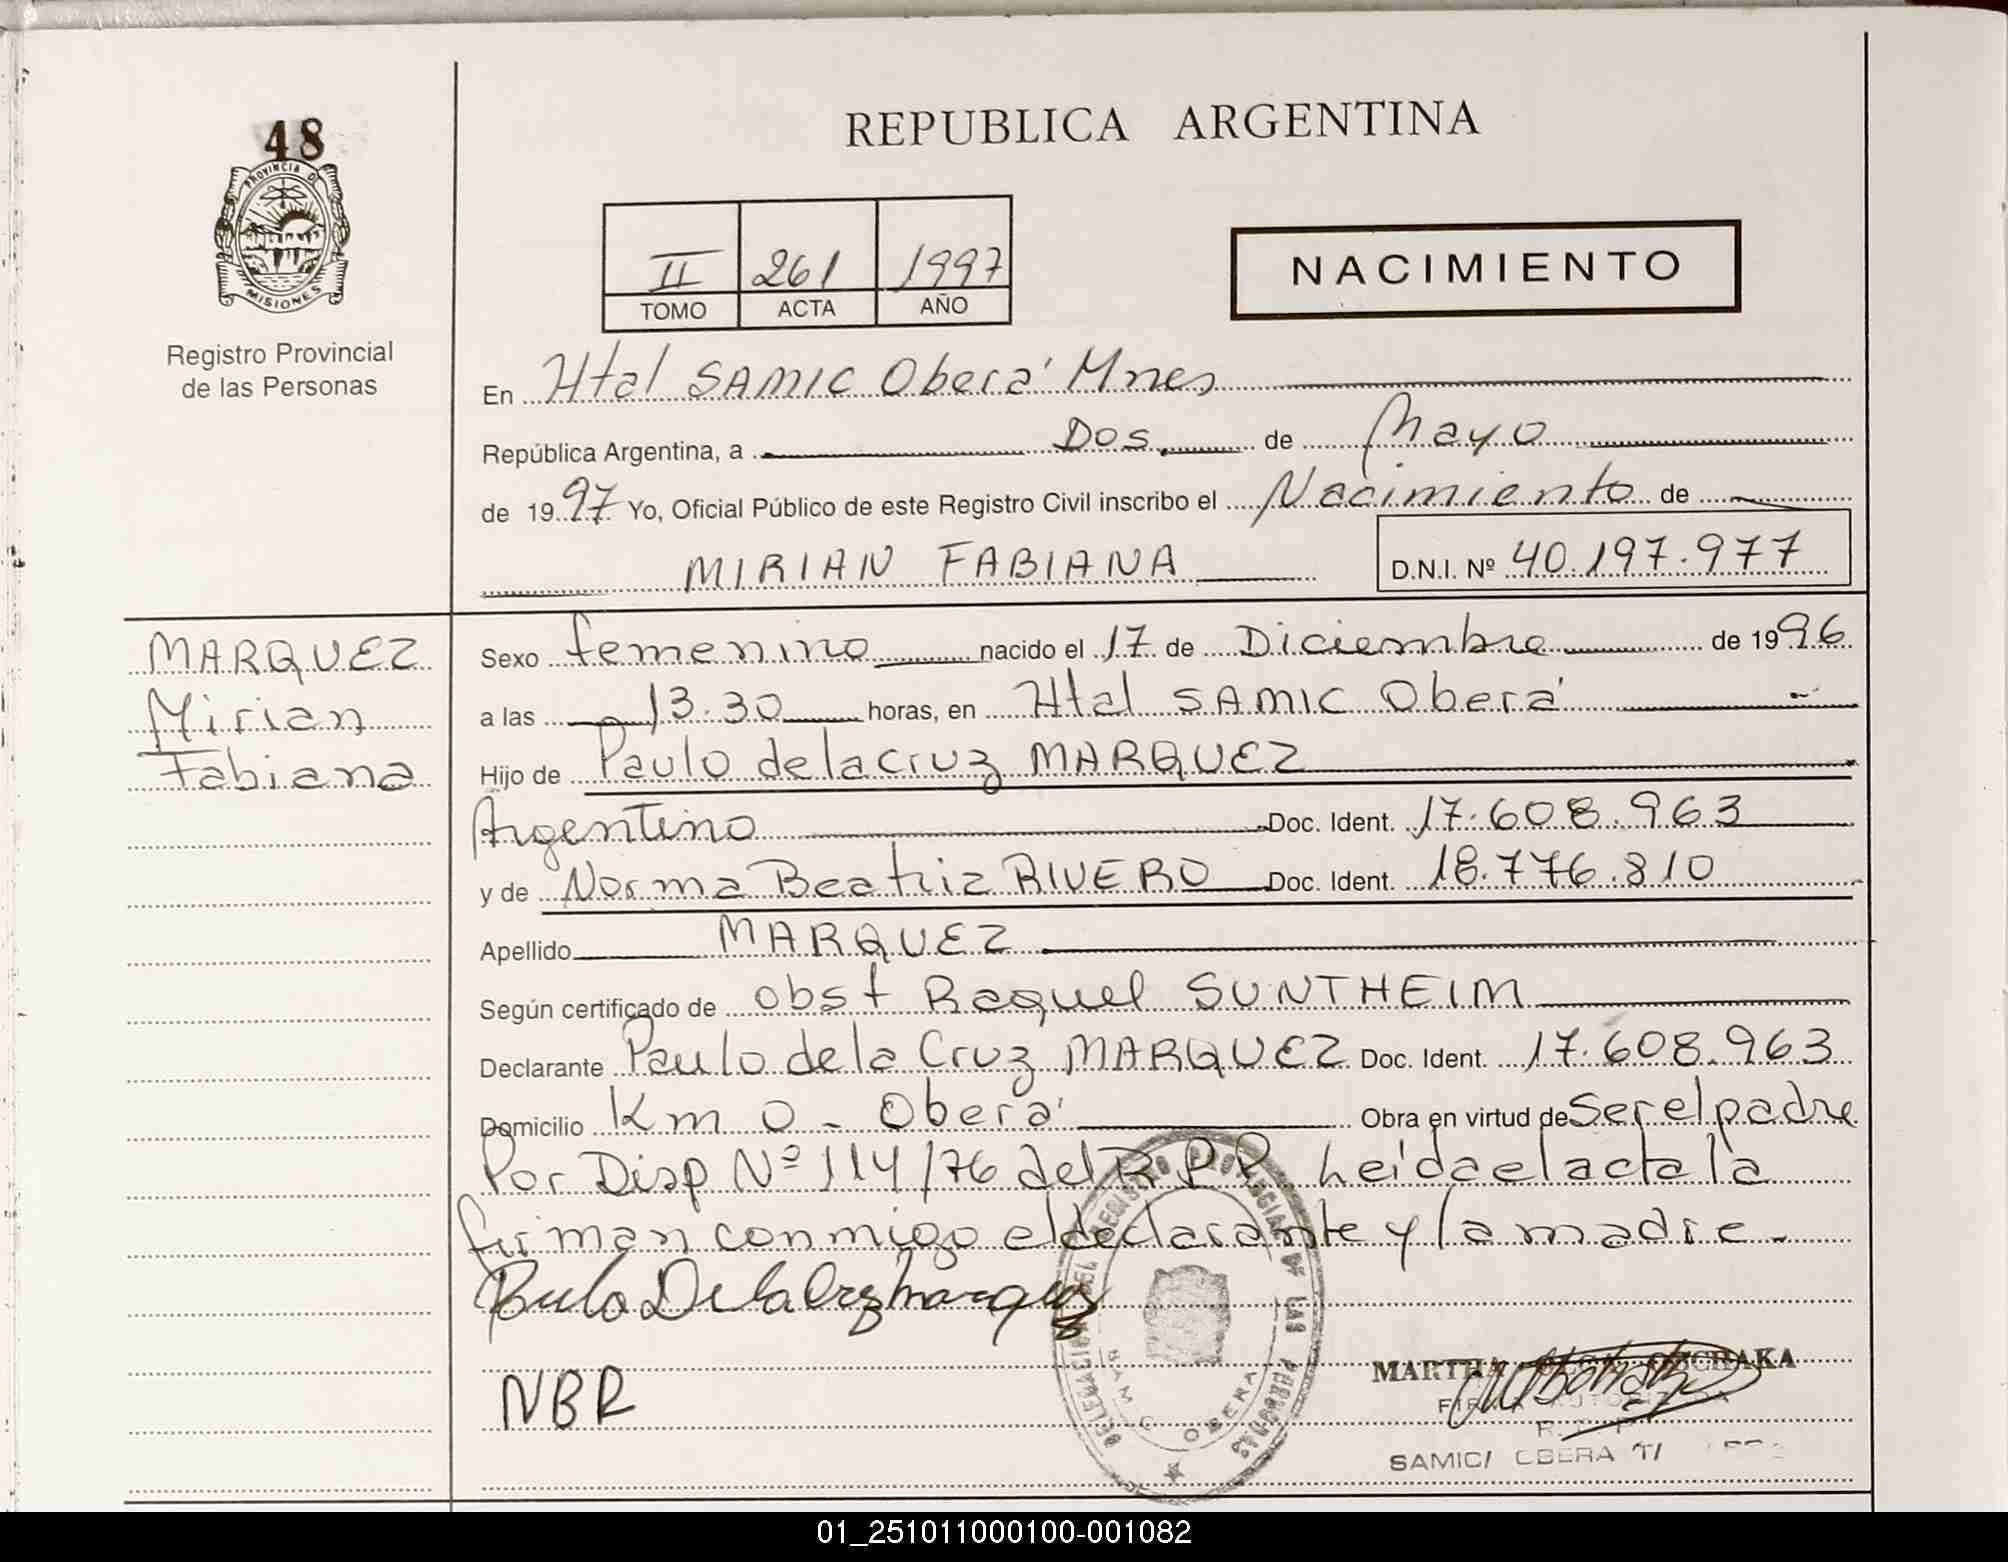 48
PROVINCIA D
MISIONES
Registro Provincial
de las Personas
REPUBLICA ARGENTINA
II 261 1997
TOMO ACTA AÑO
NACIMIENTO
En Htal SAMIC Oberá Mnes
República Argentina, a Dos de Mayo
de 1997 Yo, Oficial Público de este Registro Civil inscribo el Nacimiento de
MIRIAN FABIANA D.N.I. Nº 40.197.977
MARQUEZ
Mirian
Fabiana
Sexo femenino nacido el 17 de Diciembre de 1996
a las 13.30 horas, en Htal SAMIC Oberá
Hijo de Paulo de la Cruz MARQUEZ
Argentino Doc. Ident. 17.608.963
y de Norma Beatriz RIVERO Doc. Ident. 18.776.810
Apellido MARQUEZ
Según certificado de obst Raquel SUNTHEIM
Declarante Paulo de la Cruz MARQUEZ Doc. Ident. 17.608.963
Domicilio Km 0 - Oberá Obra en virtud de ser el padre
Por Disp Nº 114/76 del R.P.P. Leída el acta la
firman conmigo el declarante y la madre.
Paulo De la Cruz Marquez
NBR
REGISTRO PROVINCIAL DE LAS PERSONAS
OBERA
MARTHA
SAMIC/ OBERA
01_251011000100-001082